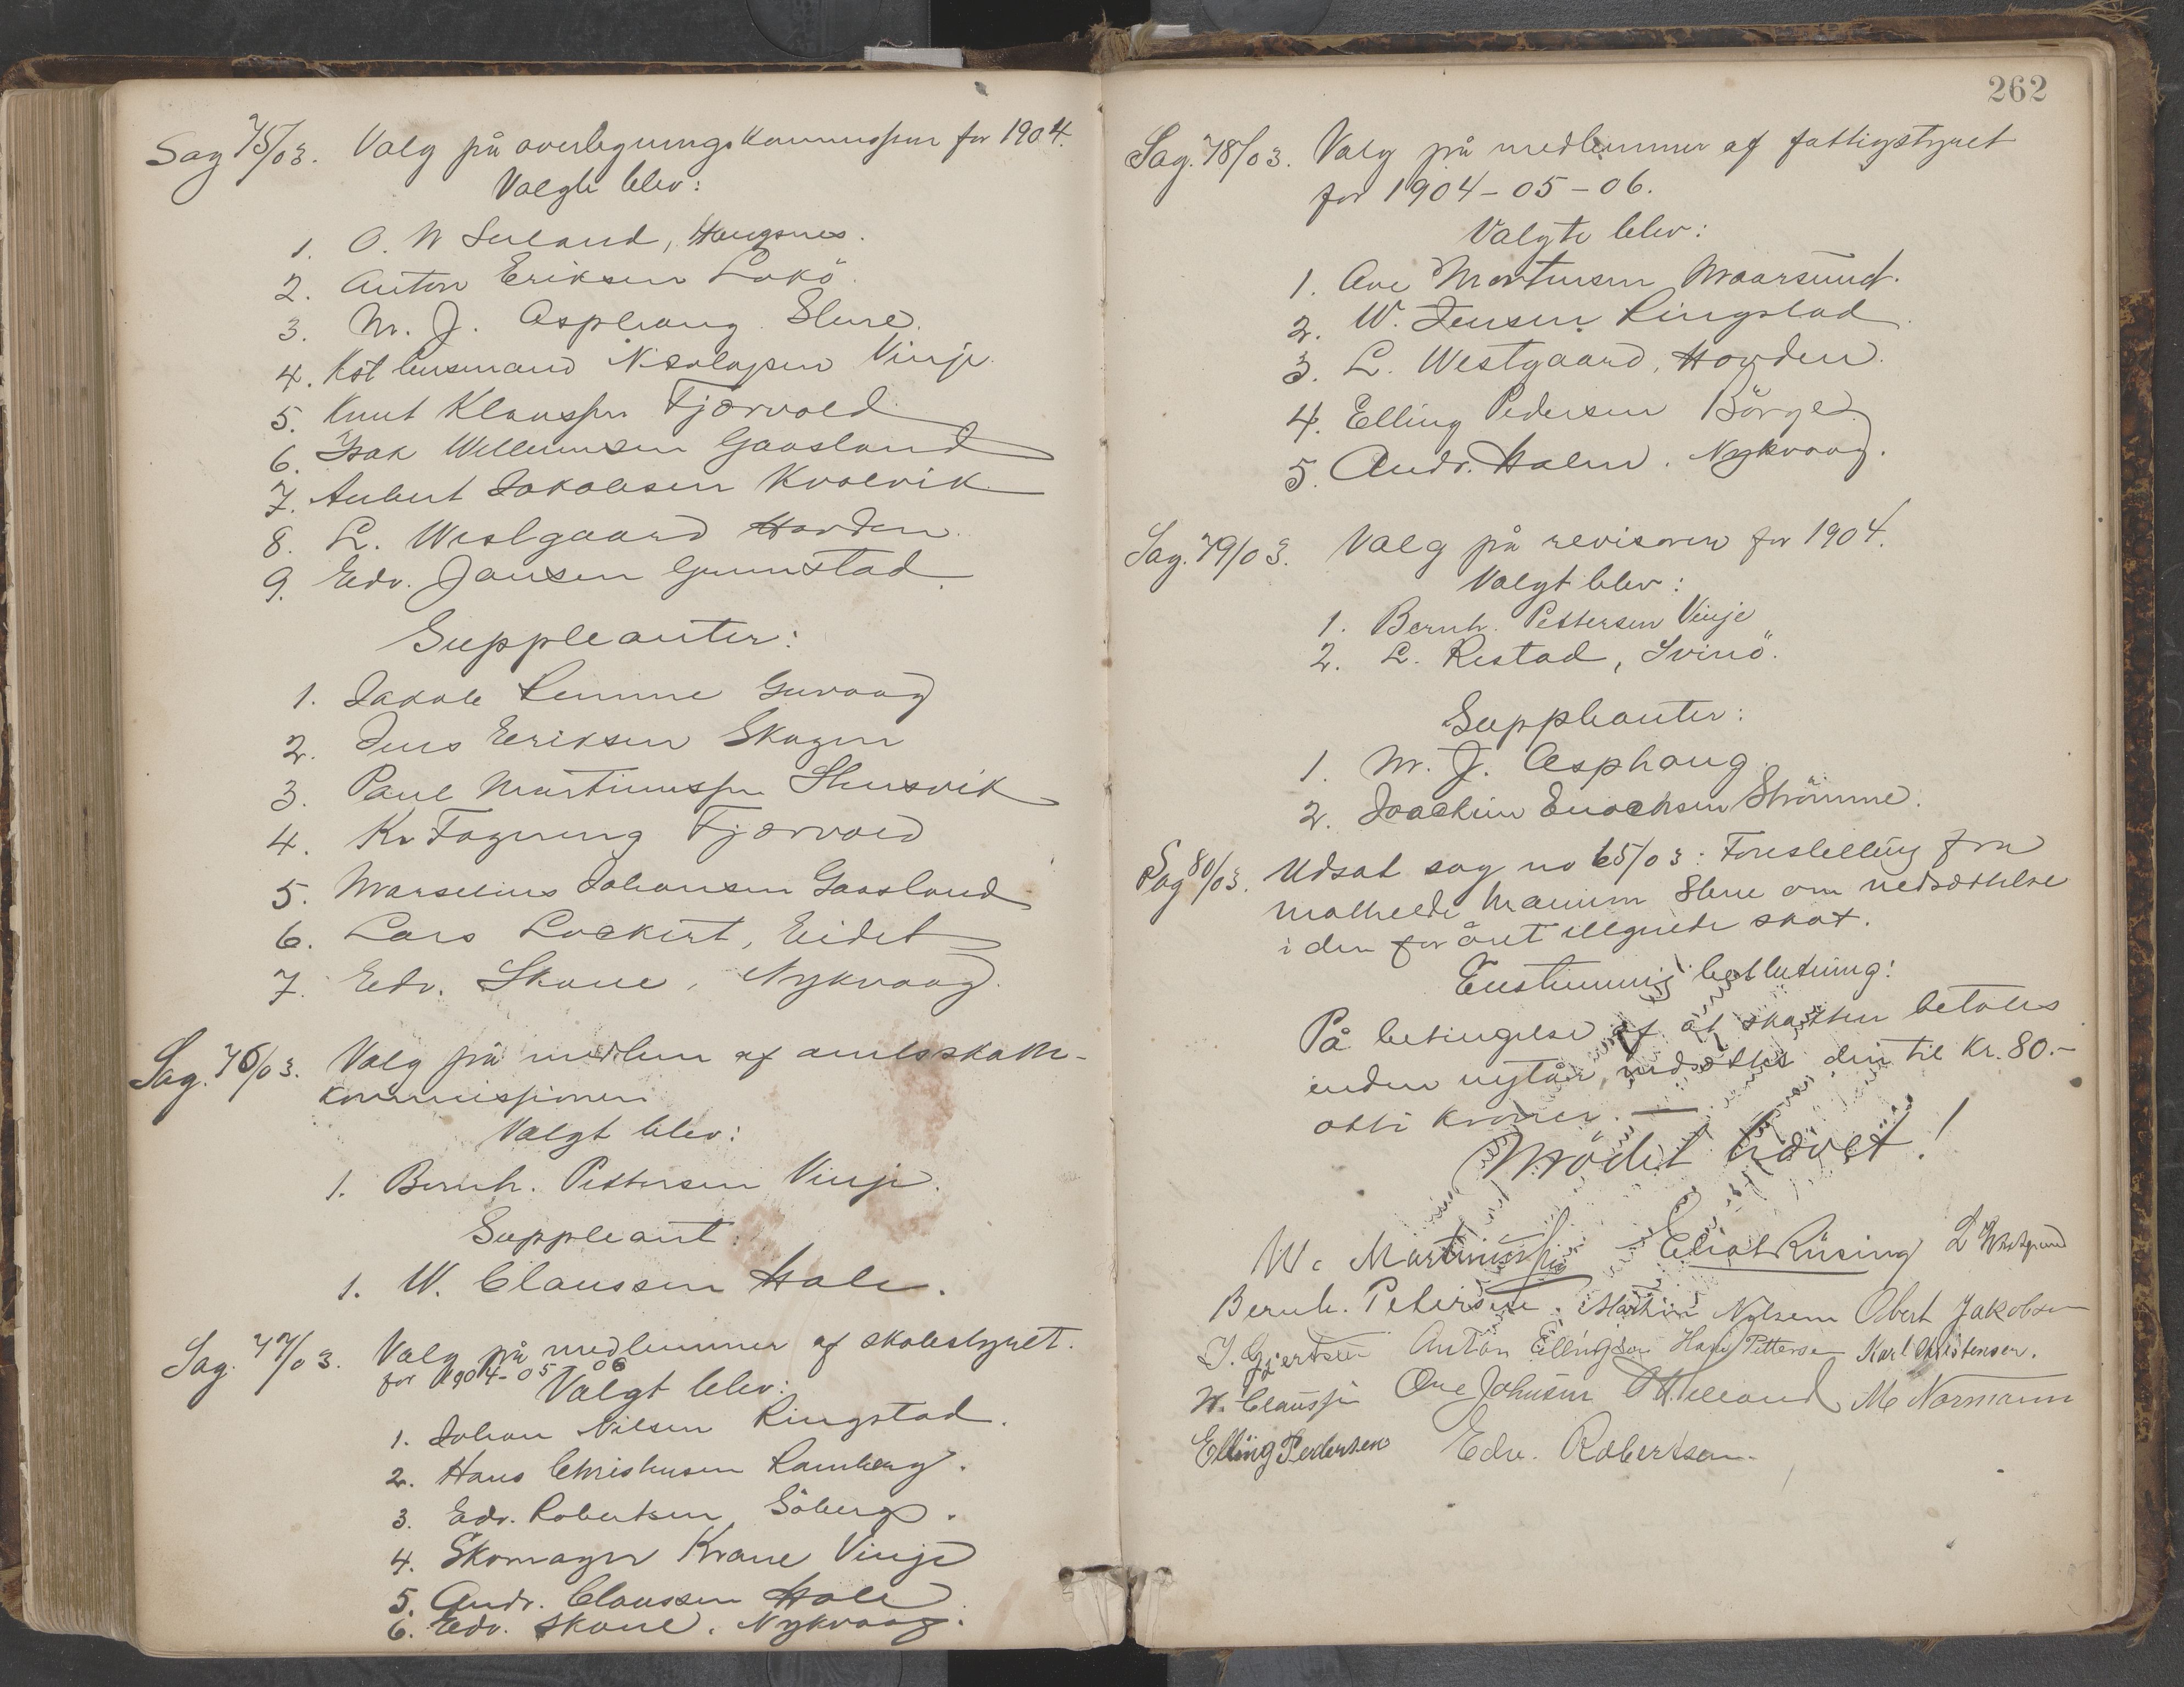 Sag 75/03. Valg på overligningskommissjon for 1904.
Valgte blev:
1. O. W Seland, Haugsnes.
2. Anton Eriksen Lokö.
3. M. J. Asphaug Stene.
4. Kst lensmand Nikolajsen Vinje.
5. Knut Klaussen Fjærvold
6. Isak Willumsen Gaasland
7. Aubert Jakobsen Kvalvik
8. L. Westgaard Hovden.
9. Edv. Jansen Guvnstad.
Suppleanter:
1. Jakob Remme Guvaag
2. Jens Eriksen Skagen
3. Paul Martinussen Skusvik
4. Kr Fagerng Fjærvold
5. Marselius Johansen Gaasland
6. Lars Lockert, Eidet
7. Edv. Skaue, Nykvaag.
Sag. 76/03. Valg på medlem af amtsskatte-
kommissjonen
Valgt blev:
1. Bernh. Pettersen Vinje.
Suppleant:
1. W. Claussen Hole.
Sag. 77/03. Valg på medlemmer af skolestyret.
for 1904-05-06
Valgt blev:
1. Johan Nilsen Ringstad.
2. Hans Christensen Ramberg.
3. Edv. Robertsen Söberg.
4. Skomager Krane Vinje
5. Andr. Claussen Hole
6. Edv. Skaue, Nykvaag.
262
Sag. 78/03. Valg på medlemmer af fattigstyret
for 1904-05-06.
Valgte blev:
1. Ave Martinsen Maarsund.
2. W. Jensen Ringstad.
3. L. Westgaard, Hovden.
4. Elling Pedersen Börge
5. Andr. Halm. Nykvaag.
Sag. 79/03. Valg på revisorer for 1904.
Valgt blev:
1. Bernh. Pettersen Vinje
2. L. Restad, Svinö.
Suppleanter:
1. M. J. Asphaug
2. Joachim Enochsen Strömme.
Sag 80/03. Udsat sag no 65/03: Forestilling fra
Mathilde Hamm Stene om nedsættelse
i den for året ilignede skat.
Enstemmig beslutning:
På betingelse af at skatten betales
inden nytår, nedsættes den til kr. 80.-
otti kroner. —
Mödet hævet!
M. Martinussen Eliot Rüsing L Westgaard
Bernh. Petersen. Martin Nilsen Obert Jakobsen
J. Gjertsen Anton Ellingsen Hans Pettersen Karl Kristensen.
W. Claussen Ove Johnsen O W Seland M. Normann
Elling Pedersen Edv. Robertsen.